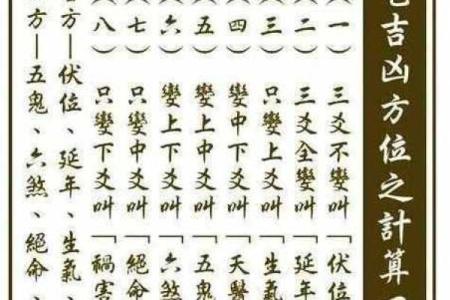 吉凶方位之計算
(一) 三爻不變叫「伏位
(二) 三爻全變叫「延年
(三) 只變上爻叫「生氣
(四) 變中下爻叫「天醫
(五) 變上中爻叫「五鬼
(六) 變上下爻叫「六煞
(七) 只變中爻叫「絕命
(八) 只變下爻叫「禍害
方—伏位、延年、生氣、
方—五鬼、六煞、絕命、